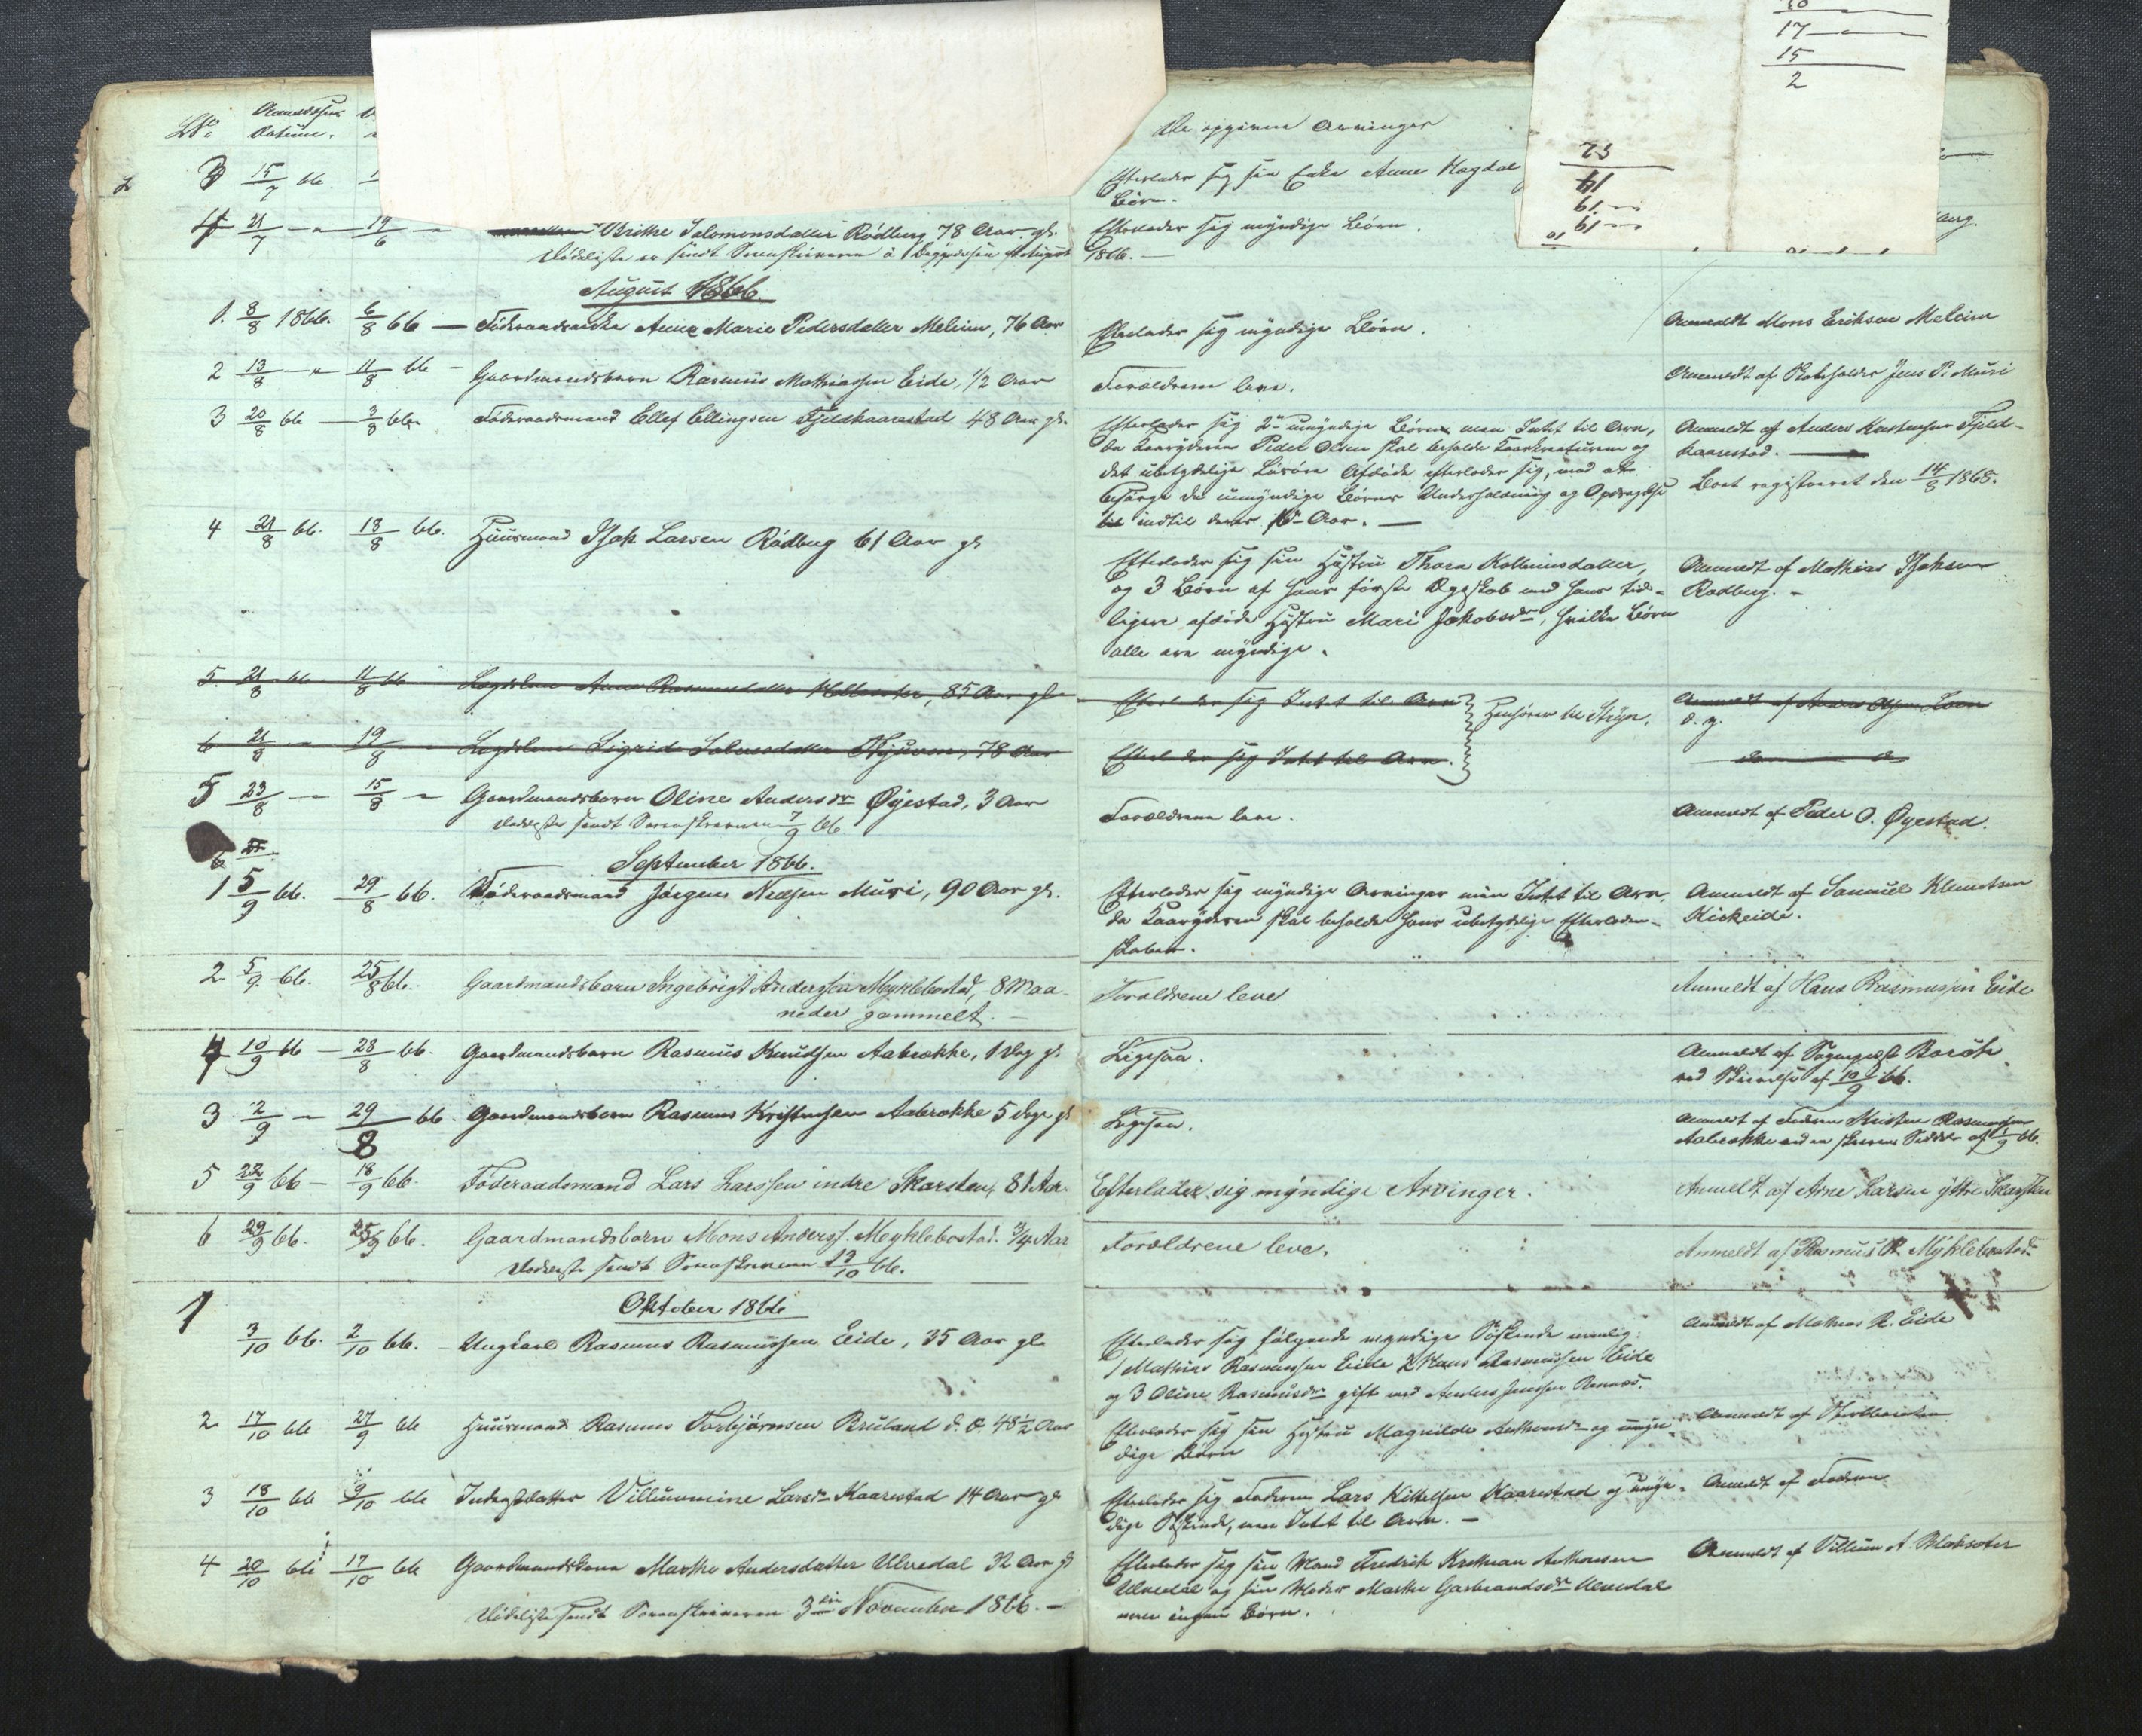 LNo Anmeldelsens Datum. De opgivne Arvinger
3 15/7 66 Efterlader sig sin Enke Anne Hogdal
Børn.
4 21/7 — " — 19/6 — Ulrikke Salomonsdatter Rødberg 78 Aar gl. Efterlader sig myndige Børn.
Dødsliste er sendt Sorenskriveren i Begyndelsen af August 1866. —
August 1866.
1. 8/8 1866. 6/8 66 — Føderaadsenke Anne Marie Pedersdatter Melheim, 76 Aar Efterlader sig myndige Børn. Anmeldt Mons Eriksen Melheim
2 13/8 — " — 11/8 66 — Gaardmandsbarn Rasmus Mathiassen Eide, 1/2 Aar Forældrene leve. Anmeldt af Jens P. Muri
3 20/8 66 — 3/8 66. Føderaadsmand Ellef Ellingsen Fjeldkaarestad 48 Aar gl.
Efterlader sig 2 umyndige Børn men Intet til Arv, Anmeldt af Anders Fjeld-
da Kaaryderen Peder Olsen skal beholde Kaarkreaturene og kaarestad. —
det ubetydelige Løsøre Afdøde efterlader sig, mod at
besørge de umyndige Børns Underholdning og Opdragelse Boet registreret den 14/8 1865.
til indtil deres Aar. —
4 21/8 66. 18/8 66. Huusmand Isak Larsen Rødberg 61 Aar gl
Efterlader sig sin Hustru Thora Kolbeinsdatter, Anmeldt af Mathias Isaksen
og 3 Børn af hans første Ægteskab med hans tid- Rødberg. —
ligere afdøde Hustru Mari Jakobsdr, hvilke Børn
alle ere myndige.
5. 21/8 66 11/8 66 Lægdslem Anne Rasmusdatter, 85 Aar gl Efterlader sig Intet til Arv Henhører til Stryn. Anmeldt af Anders Olsen Loen
d. y.
6 21/8 — " 19/8 Lægdslem Sigrid 78 Aar Efterlader sig Intet til Arv.
5 23/8 — " 15/8 — " Gaardmandsbarn Oline Andersdr Øyestad, 3 Aar Forældrene leve. Anmeldt af Peder O. Øyestad.
Dødsliste sendt Sorenskriveren 7/9 66
6
September 1866.
1 5/9 66. 29/8 66. Føderaadsmand Jørgen Nedsen Muri, 90 Aar gl. Efterlader sig myndige Arvinger men Intet til Arv, Anmeldt af Samuel Klementsen
da Kaaryderen skal beholde hans ubetydelige Efterladen- Kirkeide.
skaber.
2 5/9. 66. 25/8 66. Gaardmandsbarn Ingebrigt Anderssen Myklebostad, 8 Maa- Forældrene leve Anmeldt af Hans Rasmussen Eide
neder gammelt. —
4 10/9 66 — 28/8 66. Gaardmandsbarn Rasmus Knudsen Aabrække, 1 Dag gl. Ligesaa. Anmeldt af Sognepræst Barøk
ved Skrivelse af 10/9 66.
3 2/9 — " 29/8 66. Gaardmandsbarn Rasmus Kristensen Aabrække 5 Dage gl Ligesaa. Anmeldt af Faderen Kristen Rasmussen
Aabrække ved en skreven Seddel af 1/9 66.
5 22/9 66 — 18/9 66. Føderaadsmand Lars Larssen indre Skarsten, 81 Aar. Efterlader sig myndige Arvinger. Anmeldt af Arne Larsen ytre Skarsten
6 29/9 66. 25/9 66. Gaardmandsbarn Mons Anderss. Myklebostad. 3/4 Aar Forældrene leve. Anmeldt af Rasmus R. Myklebostad
Dødsliste sendt Sorenskriveren 12/10 66.
Oktober 1866
1 3/10 66. 2/10 66. — Ungkarl Rasmus Rasmussen Eide, 35 Aar gl. Efterlader sig følgende myndige Søskende nemlig: Anmeldt af Mathias R. Eide
1 Mathias Rasmussen Eide 2 Hans Rasmussen Eide
og 3 Oline Rasmusdr gift med Anders Jensen
2 17/10 66 27/9 66 Huusmand Rasmus Torbjørnsen Bruland 48 1/2 Aar Efterlader sig sin Hustru Magnilde Anthonsdr og umyn- Anmeldt af
dige Børn
3 18/10 66 9/10 66 Inderstdatter Villumine Larsdr Kaarestad 14 Aar gl Efterlader sig Faderen Lars Kittelsen Kaarestad og umyn- Anmeldt af Faderen
dige Søskende, men Intet til Arv. —
4 20/10 66 17/10 66 Gaardmandskone Marthe Andersdatter Ulvedal 32 Aar gl Efterlader sig sin Mand Fredrik Kristian Anthonsen Anmeldt af Villum A. Blaksæter
Ulvedal og sin Moder Marthe Garbrandsdr Ulvedal
Dødsliste sendt Sorenskriveren 3die November 1866. — men ingen Børn.
17
15
2
23
14
19
19